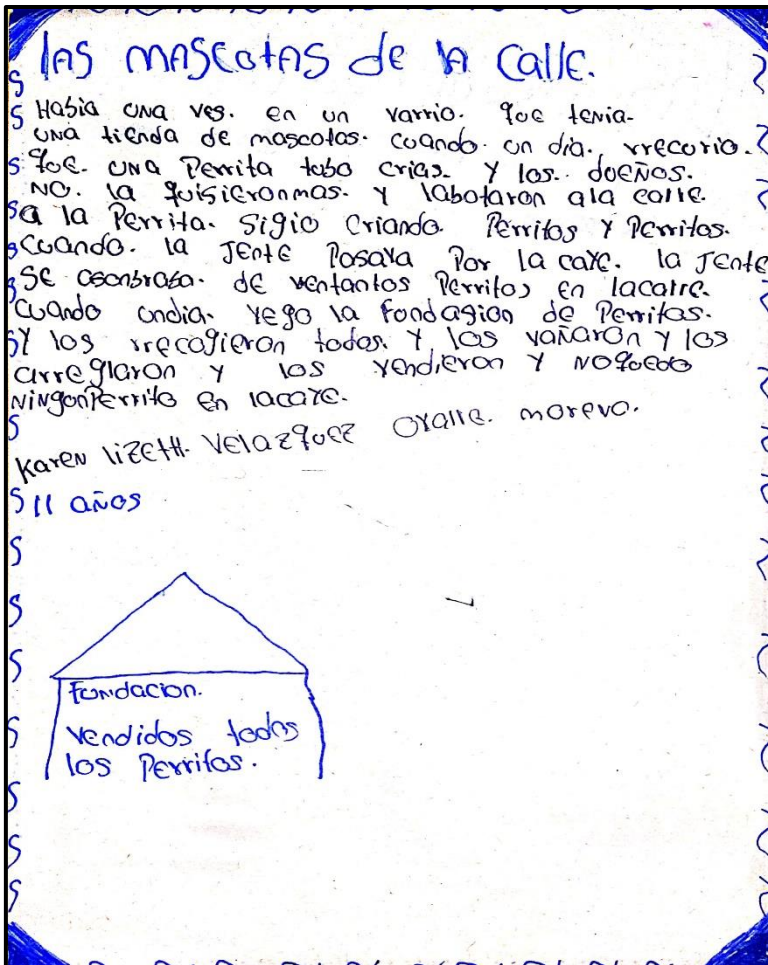 las mascotas de la calle.
Habia una ves. en un varrio. que tenia-
una tienda de mascotas. cuando. un dia. rrecorio.
que. una Perrita tubo crias. y los. dueños.
No. la quisieronmas. y labotaron ala calle.
a la Perrita. Sigio criando. Perritos y Perritos.
cuando. la Jente Pasava Por la caye. la Jente
se asonbraba. de ventantos Perritos en lacalle.
cuando undia. yego la fondagion de Perritos.
y los rrecogieron todos. y los vañaron y los
arreglaron y los vendieron y noquedo
NingonPerrito en lacaye.
Karen lizeth. Velazquez Ovalle. moreno.
11 años
Fundacion.
vendidos todos
los Perritos.